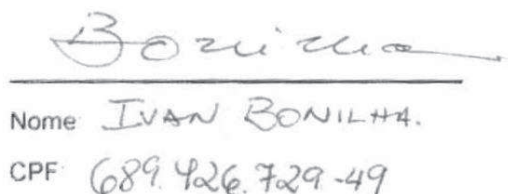 Bonilha
Nome IVAN BONILHA.
CPF 689.426.729-49